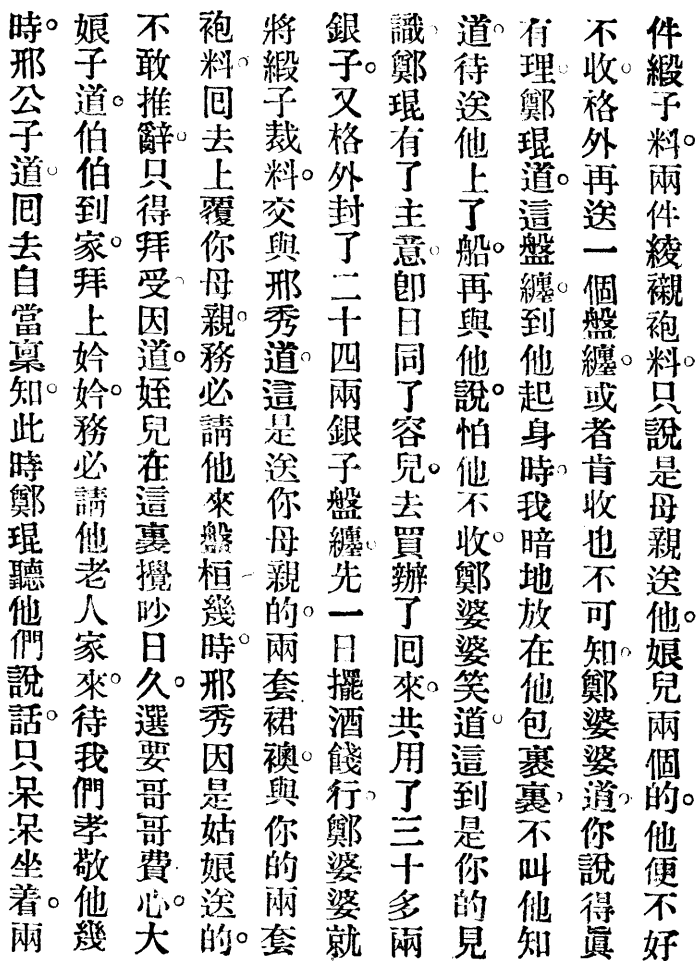 件緞子料。兩件綾襯袍料。只說是母親送他。娘兒兩個的。他便不好
不收。格外再送一個盤纏。或者肯收也不可知。鄭婆婆道。你說得眞
有理。鄭琨道。這盤纏。到他起身時。我暗地放在他包裹裏。不叫他知
道。待送他上了船。再與他說。怕他不收。鄭婆婆笑道。這到是你的見
識。鄭琨有了主意。卽日同了容兒。去買辦了囘來。共用了三十多兩
銀子。又格外封了二十四兩銀子盤纏。先一日擺酒餞行。鄭婆婆就
將緞子裁料。交與邢秀道。這是送你母親的。兩套裙襖。與你的兩套
袍料。囘去上覆你母親。務必請他來盤桓幾時。邢秀因是姑娘送的。
不敢推辭。只得拜受。因道。姪兒在這裏攪吵日久。選要哥哥費心。大
娘子道。伯伯到家。拜上妗妗。務必請他老人家來。待我們孝敬他幾
時。邢公子道。囘去自當稟知。此時鄭琨聽他們說話。只呆呆坐着。兩